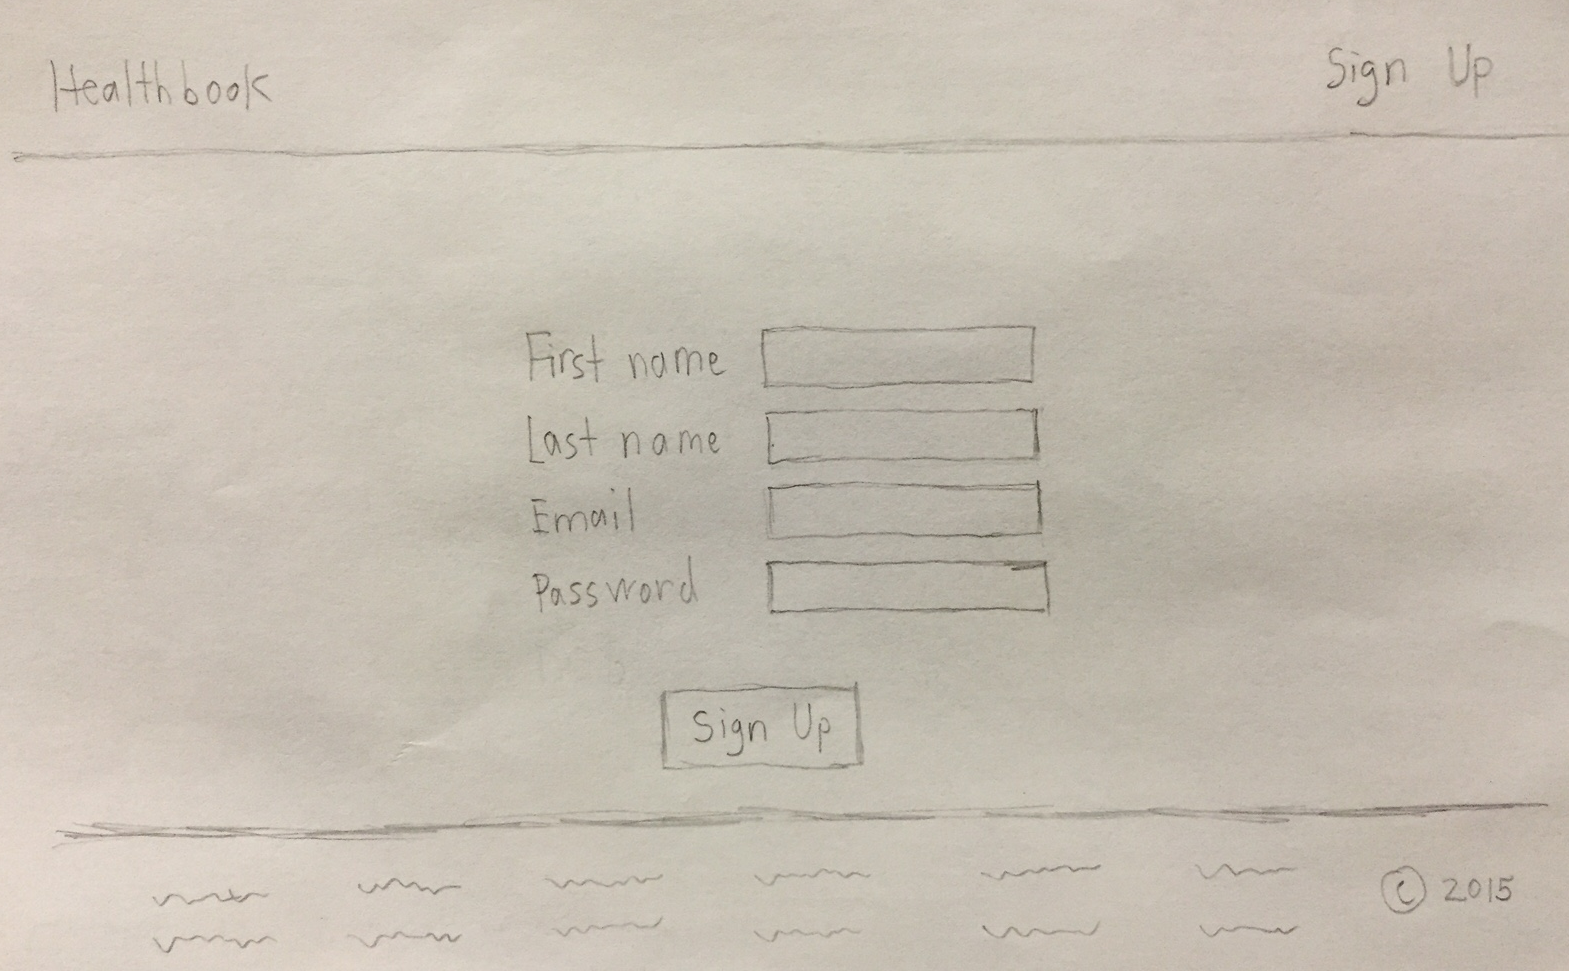 Healthbook
Sign Up
First name
Last name
Email
Password
Sign Up
© 2015